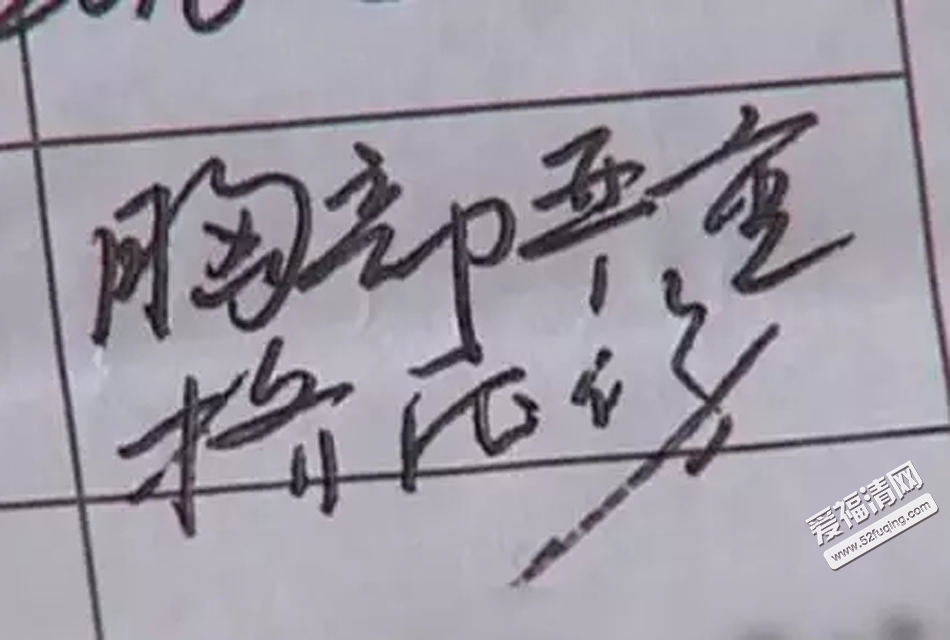 胸部严重
挤压伤
爱福清网
www.52fuqing.com